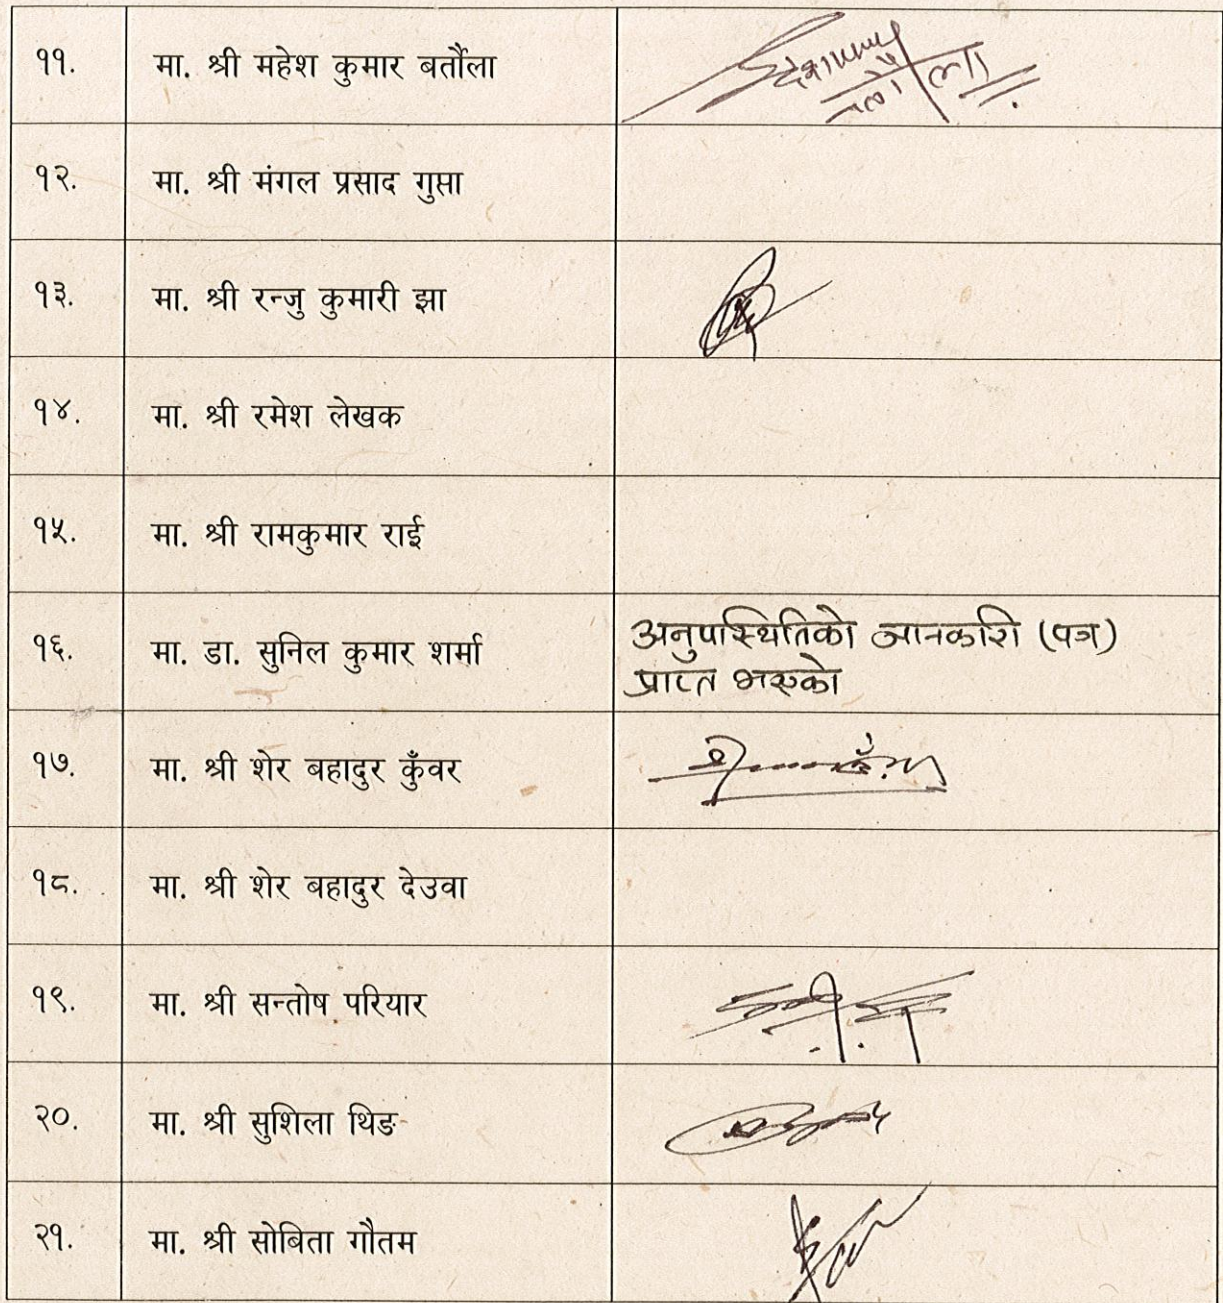 ११. मा. श्री महेश कुमार बर्तौला
१२. मा. श्री मंगल प्रसाद गुप्ता
१३. मा. श्री रन्जु कुमारी झा
१४. मा. श्री रमेश लेखक
१५. मा. श्री रामकुमार राई
१६. मा. डा. सुनिल कुमार शर्मा अनुपस्थितिको जानकारी (पत्र)
प्राप्त भएको
१७. मा. श्री शेर बहादुर कुँवर
१८. मा. श्री शेर बहादुर देउवा
१९. मा. श्री सन्तोष परियार
२०. मा. श्री सुशिला थिङ
२१. मा. श्री सोबिता गौतम